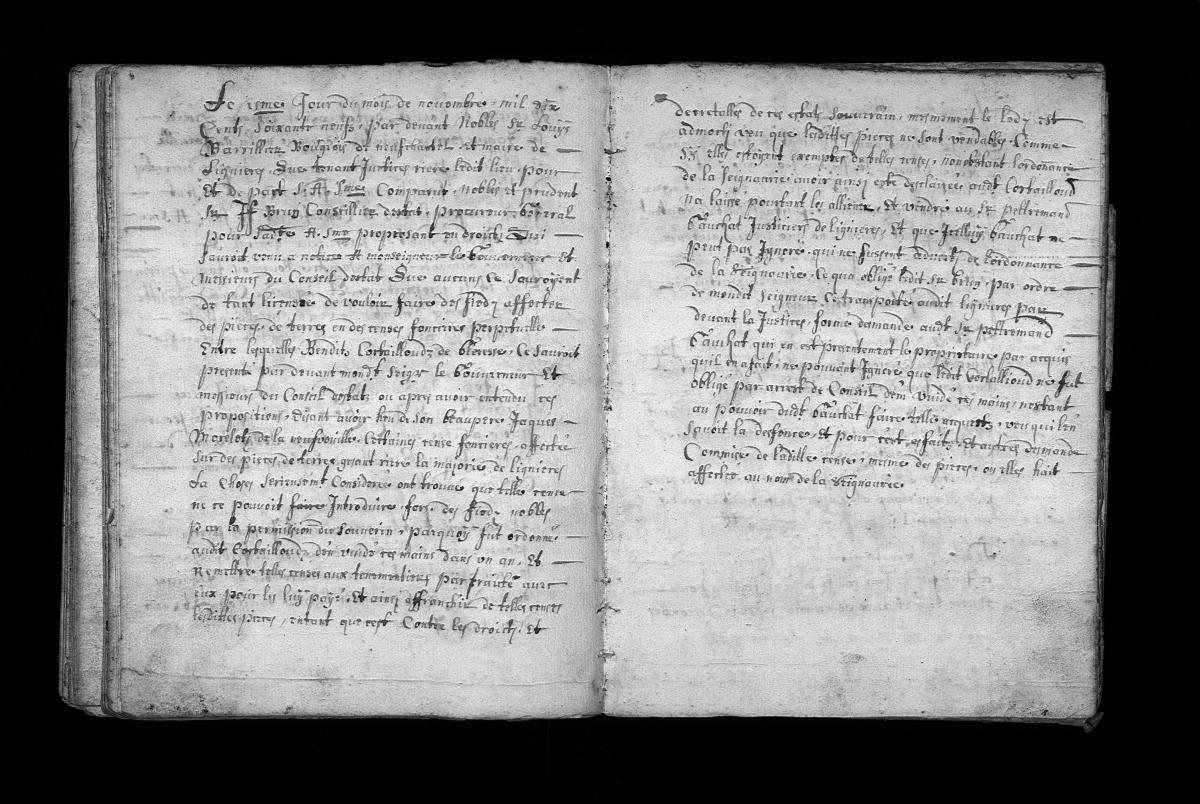 Le 15me Jour du mois de novembre, mil six
Cents Soixante neufz, par devant Nobles Sr Louys
Barrillier Bourgeois de neufchastel, et maire de
Lignieres, Que tenant Justices riere ledit lieu, pour
Et de part S. A. Sme, Comparut, Nobles et prudent
Sr Bruy Conseillier destat, procureur General
pour Sadte A. Sme proposant en droicts Qui
Sauroit venu a notice et monseigneur le Gouverneur et
messieurs du Conseil destat Que aucuns ce Sauroyent
de tant licensse de vouloir faire des fiedz affecter
des pieces, de terres en des censes foncieres perpetuelle
Entre lesquelles Benditz Corbailloudz de Gleresse, Ce Sauroit
presente par devant mondt Seigr le Gouverneur Et
messieurs du Conseil destatz ou apres avoir entendu ces
propositions, disant avoir heu de Son beaupere Jaques
Morelotz de la neufveville, Certaines cense foncieres, affectée
Sur des pieces de terre gisant riere la majorie de lignieres
La Choses Serieusemt Considerée ont trouve que telle cense
ne ce pouvoit faire Introduire, fors, des fiedz nobles
Par la permission du Souverin, parquoy fut ordonne
audit Corbailloudz den vuide ces mains dans un an, Et
Remettre telles censes aux tenementiers par traitté avec
eux pour les luy paye, Et ainsi affranchir de telles censes
lesdittes pieces, entant que cest Contre les droicts, Et
decretalles de ces estats Souverain, mesmement le lodz est
admorti veu que lesdittes pieces ne Sont vendables, Comme
Sy elles estoyent exemptes de telles censes, nonobstant lordonance
de la Seignaurie, avoir ainsi este desclairée audt Corbailloud
na laisse pourtant les alliener, Et vendre au Sr pettremand
Gauchat Justiciers de lignieres, Et que Icelluy Gauchat ne
peut pas Ignore, qui ne fussent advertis de lordonnance
de la Seignaurie, Ce qua oblige ledit Sr bruy, par ordre
de mondit Seigneur Ce transporte audit lignieres par
devant la Justices, forme demande audt Sr pettremand
Gauchat qui en est presentement le proprietaire, par acquis
quil en a fait, ne pouvant Ignore que ledit Corbailloud ne fut
oblige par arrest de Conseil den vuide ces mains, nestant
au pouvoir dudt Gauchat faire telle acquests, veu qui len
Savoit la desfence, Et pour cest effaits, Et autres demande
Commise de laditte cense, mesme des pieces, ou elles hait
affectée au nom de la Seignaurie